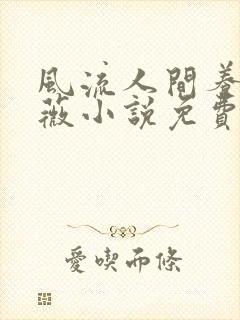 風流人間養
薇小説免費
愛喫而條